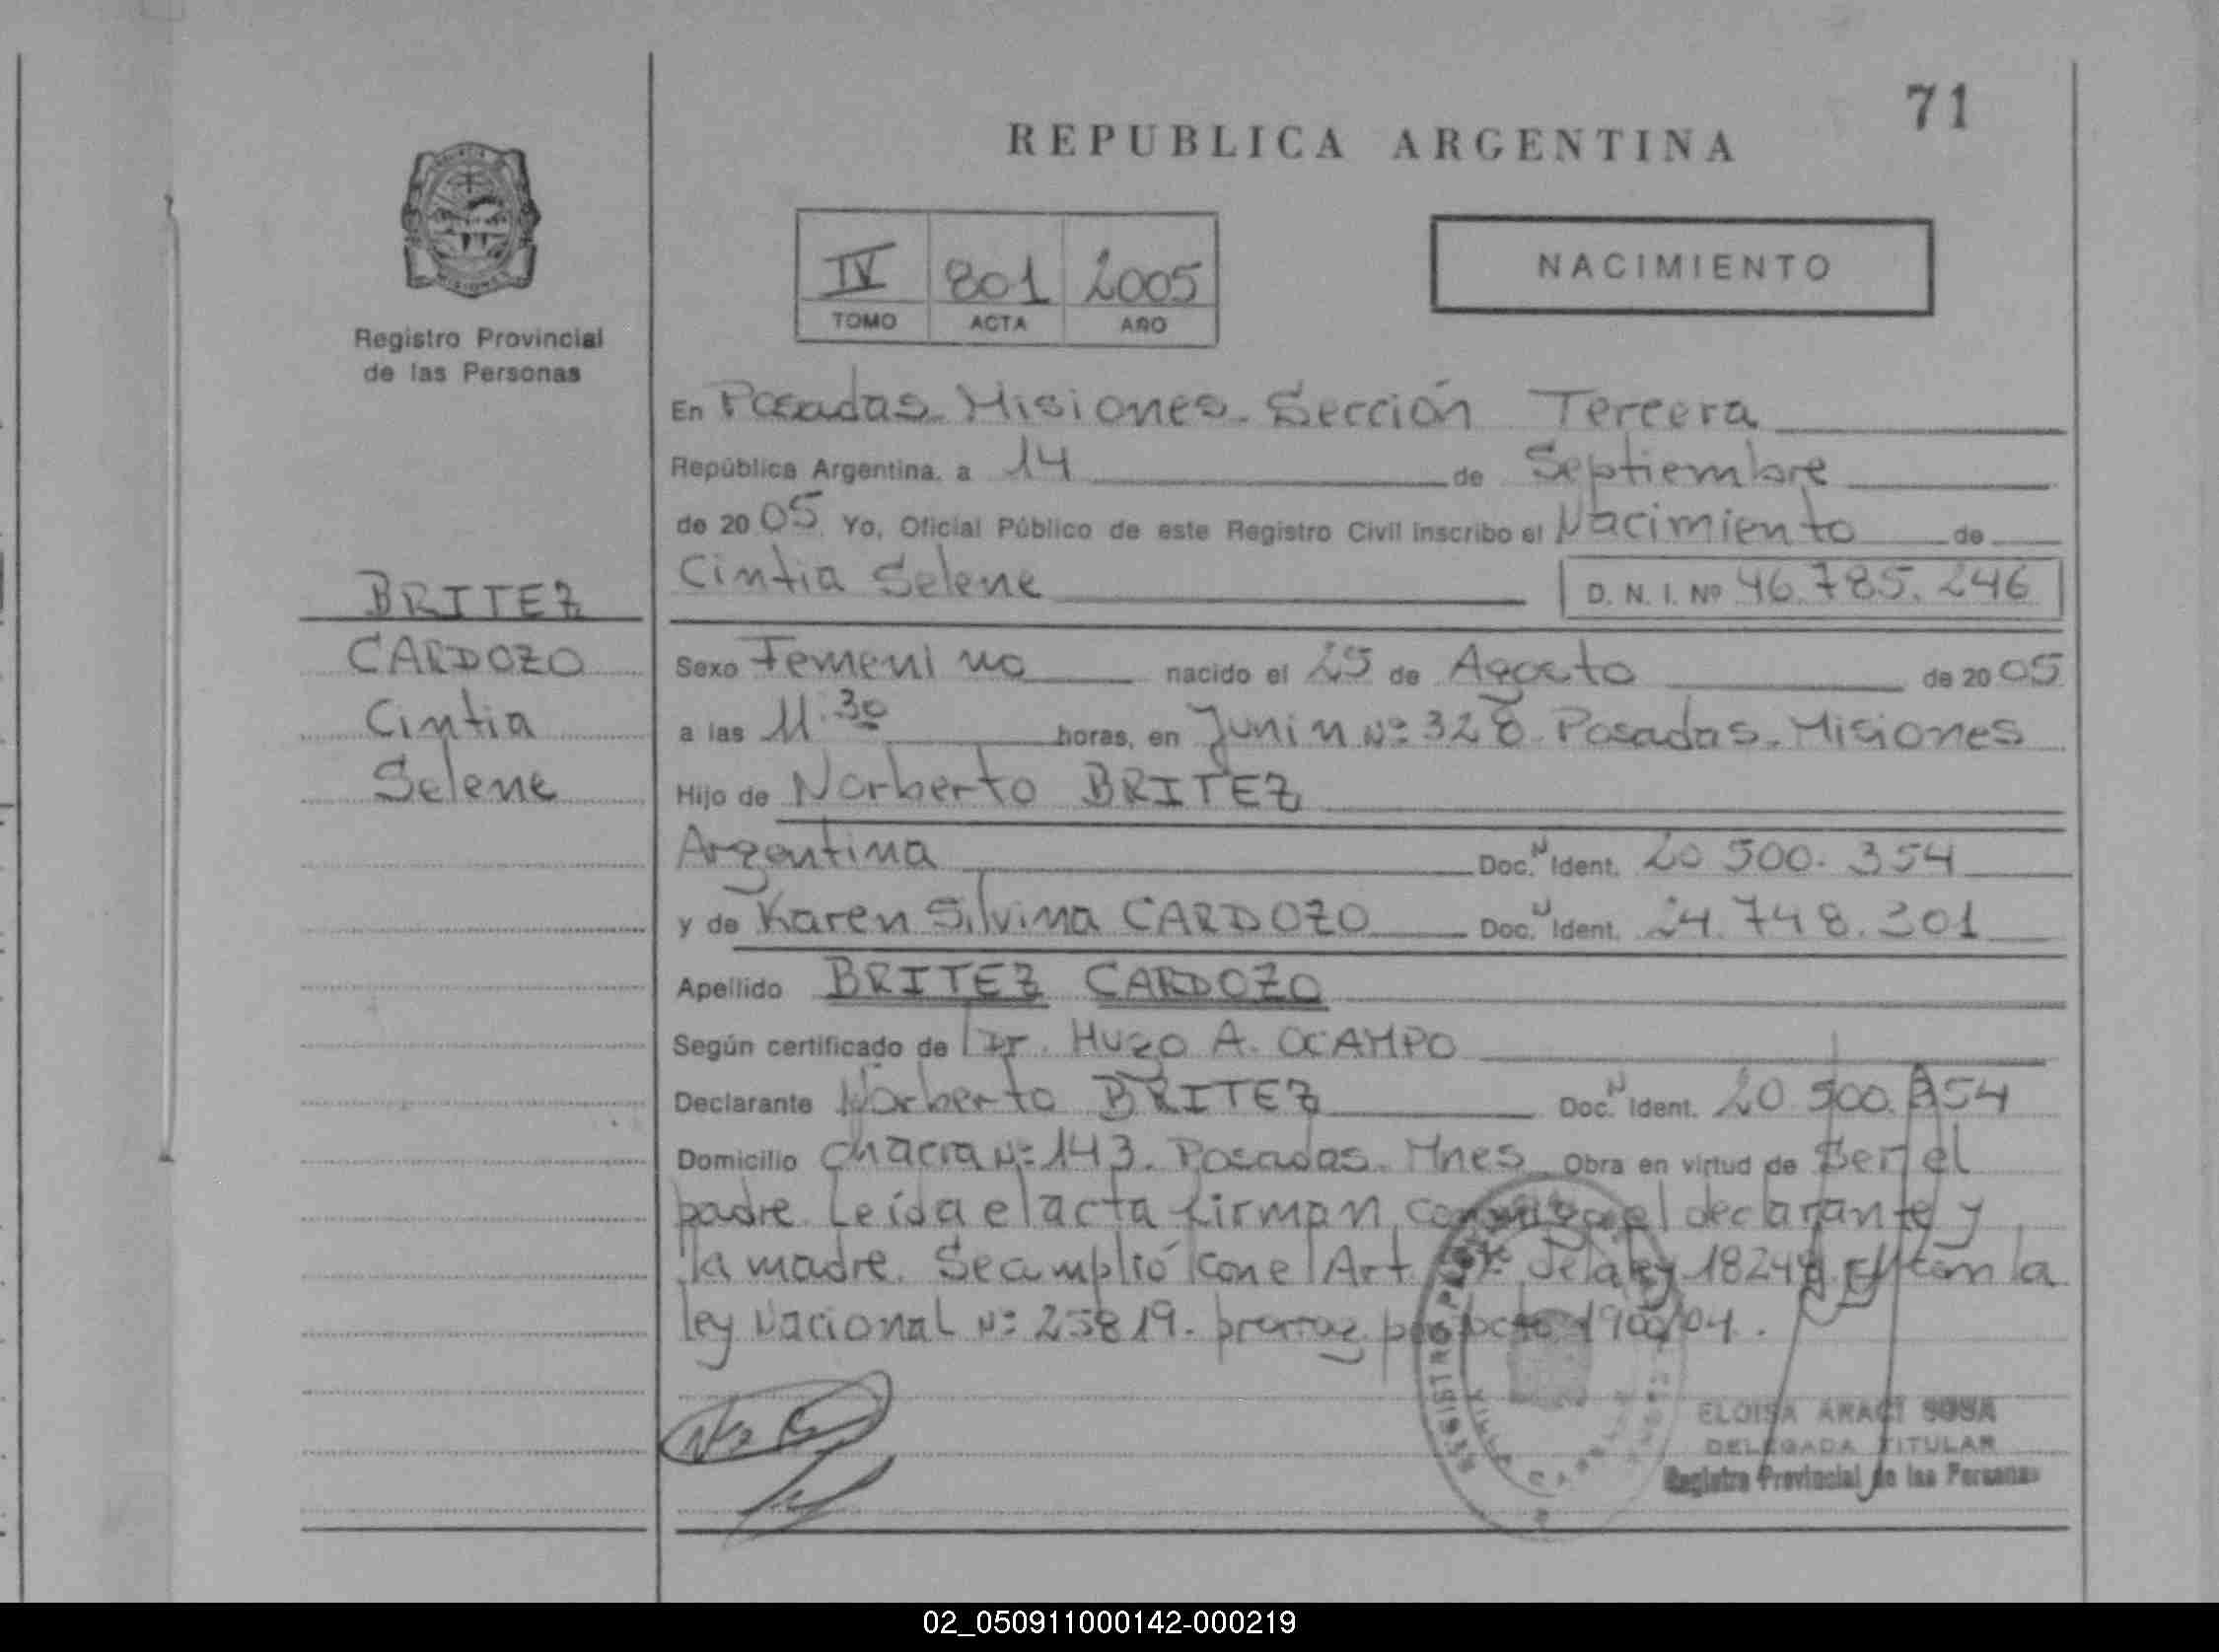 71
REPUBLICA ARGENTINA
IV 801 2005
TOMO ACTA AÑO
NACIMIENTO
Registro Provincial
de las Personas
BRITEZ
CARDOZO
Cintia
Selene
En Posadas. Misiones. Sección Tercera
República Argentina, a 14 de Septiembre
de 2005. Yo, Oficial Público de este Registro Civil inscribo el Nacimiento de
Cintia Selene D. N. I. Nº 46.785.246
Sexo Femenino nacido el 25 de Agosto de 2005
a las 11.30 horas, en Junin Nº 328. Posadas. Misiones
Hijo de Norberto BRITEZ
Argentina Doc. N Ident. 20 500. 354
y de Karen Silvina CARDOZO Doc. N Ident. 24.748.301
Apellido BRITEZ CARDOZO
Según certificado de Dr. Hugo A. OCAMPO
Declarante Norberto BRITEZ Doc. N Ident. 20 500.354
Domicilio chacra Nº 143. Posadas. Mnes Obra en virtud de Ser el
padre. Leída el acta firman conmigo el declarante y
la madre. Se cumplió con el Art. de la ley 18248 la
ley Nacional Nº 25819. prorrog. por Dcto 1900/04.
REGISTRO
VILLA CABELLO
ELOISA ARACI SOSA
DELEGADA TITULAR
Registro Provincial de las Personas
02_050911000142-000219